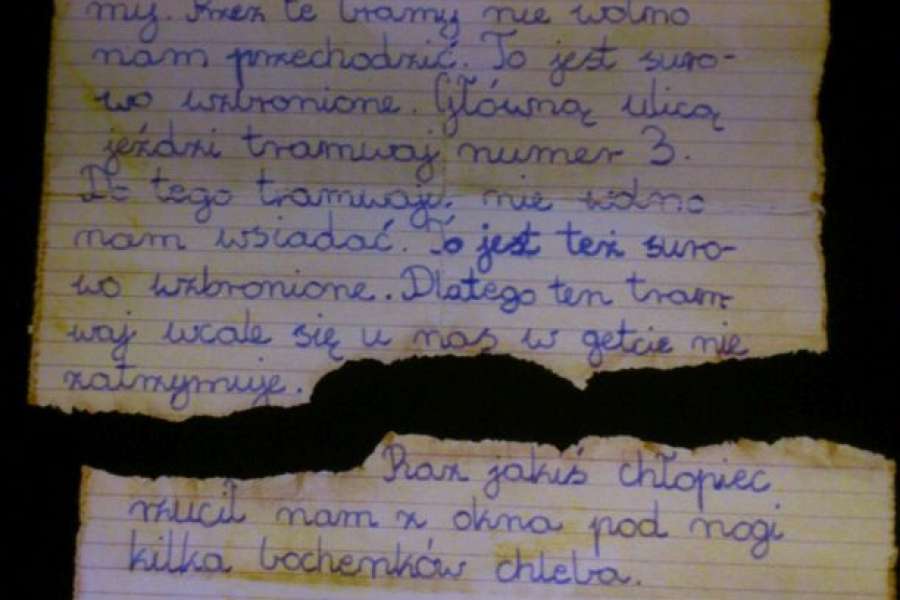 my. Przez te bramy nie wolno
nam przechodzić. To jest suro-
wo wzbronione. Główną ulicą
jeździ tramwaj numer 3.
Do tego tramwaju nie wolno
nam wsiadać. To jest też suro-
wo wzbronione. Dlatego ten tram-
waj wcale się u nas w getcie nie
zatrzymuje.
Raz jakiś chłopiec
rzucił nam z okna pod nogi
kilka bochenków chleba.